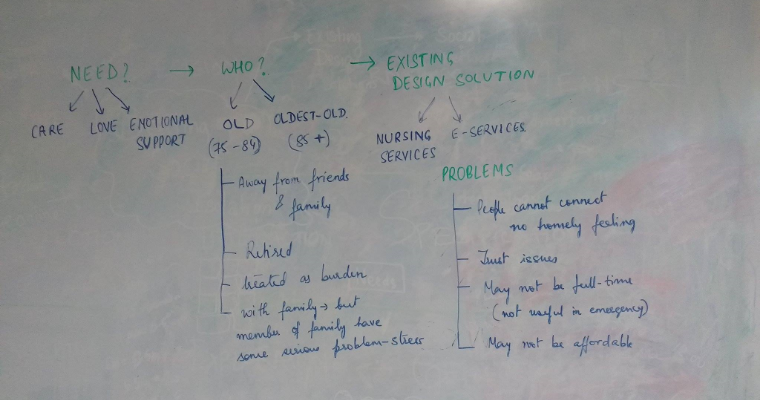 NEED? → WHO? → EXISTING
DESIGN SOLUTION
CARE LOVE EMOTIONAL
SUPPORT
OLD
(75-84)
OLDEST-OLD.
(85+)
NURSING
SERVICES
E-SERVICES
Away from friends
& family
Retired
treated as burden
with family → but
member of family have
some serious problem-stress
PROBLEMS
People cannot connect
no homely feeling
Trust issues
May not be full-time
(not useful in emergency)
May not be affordable